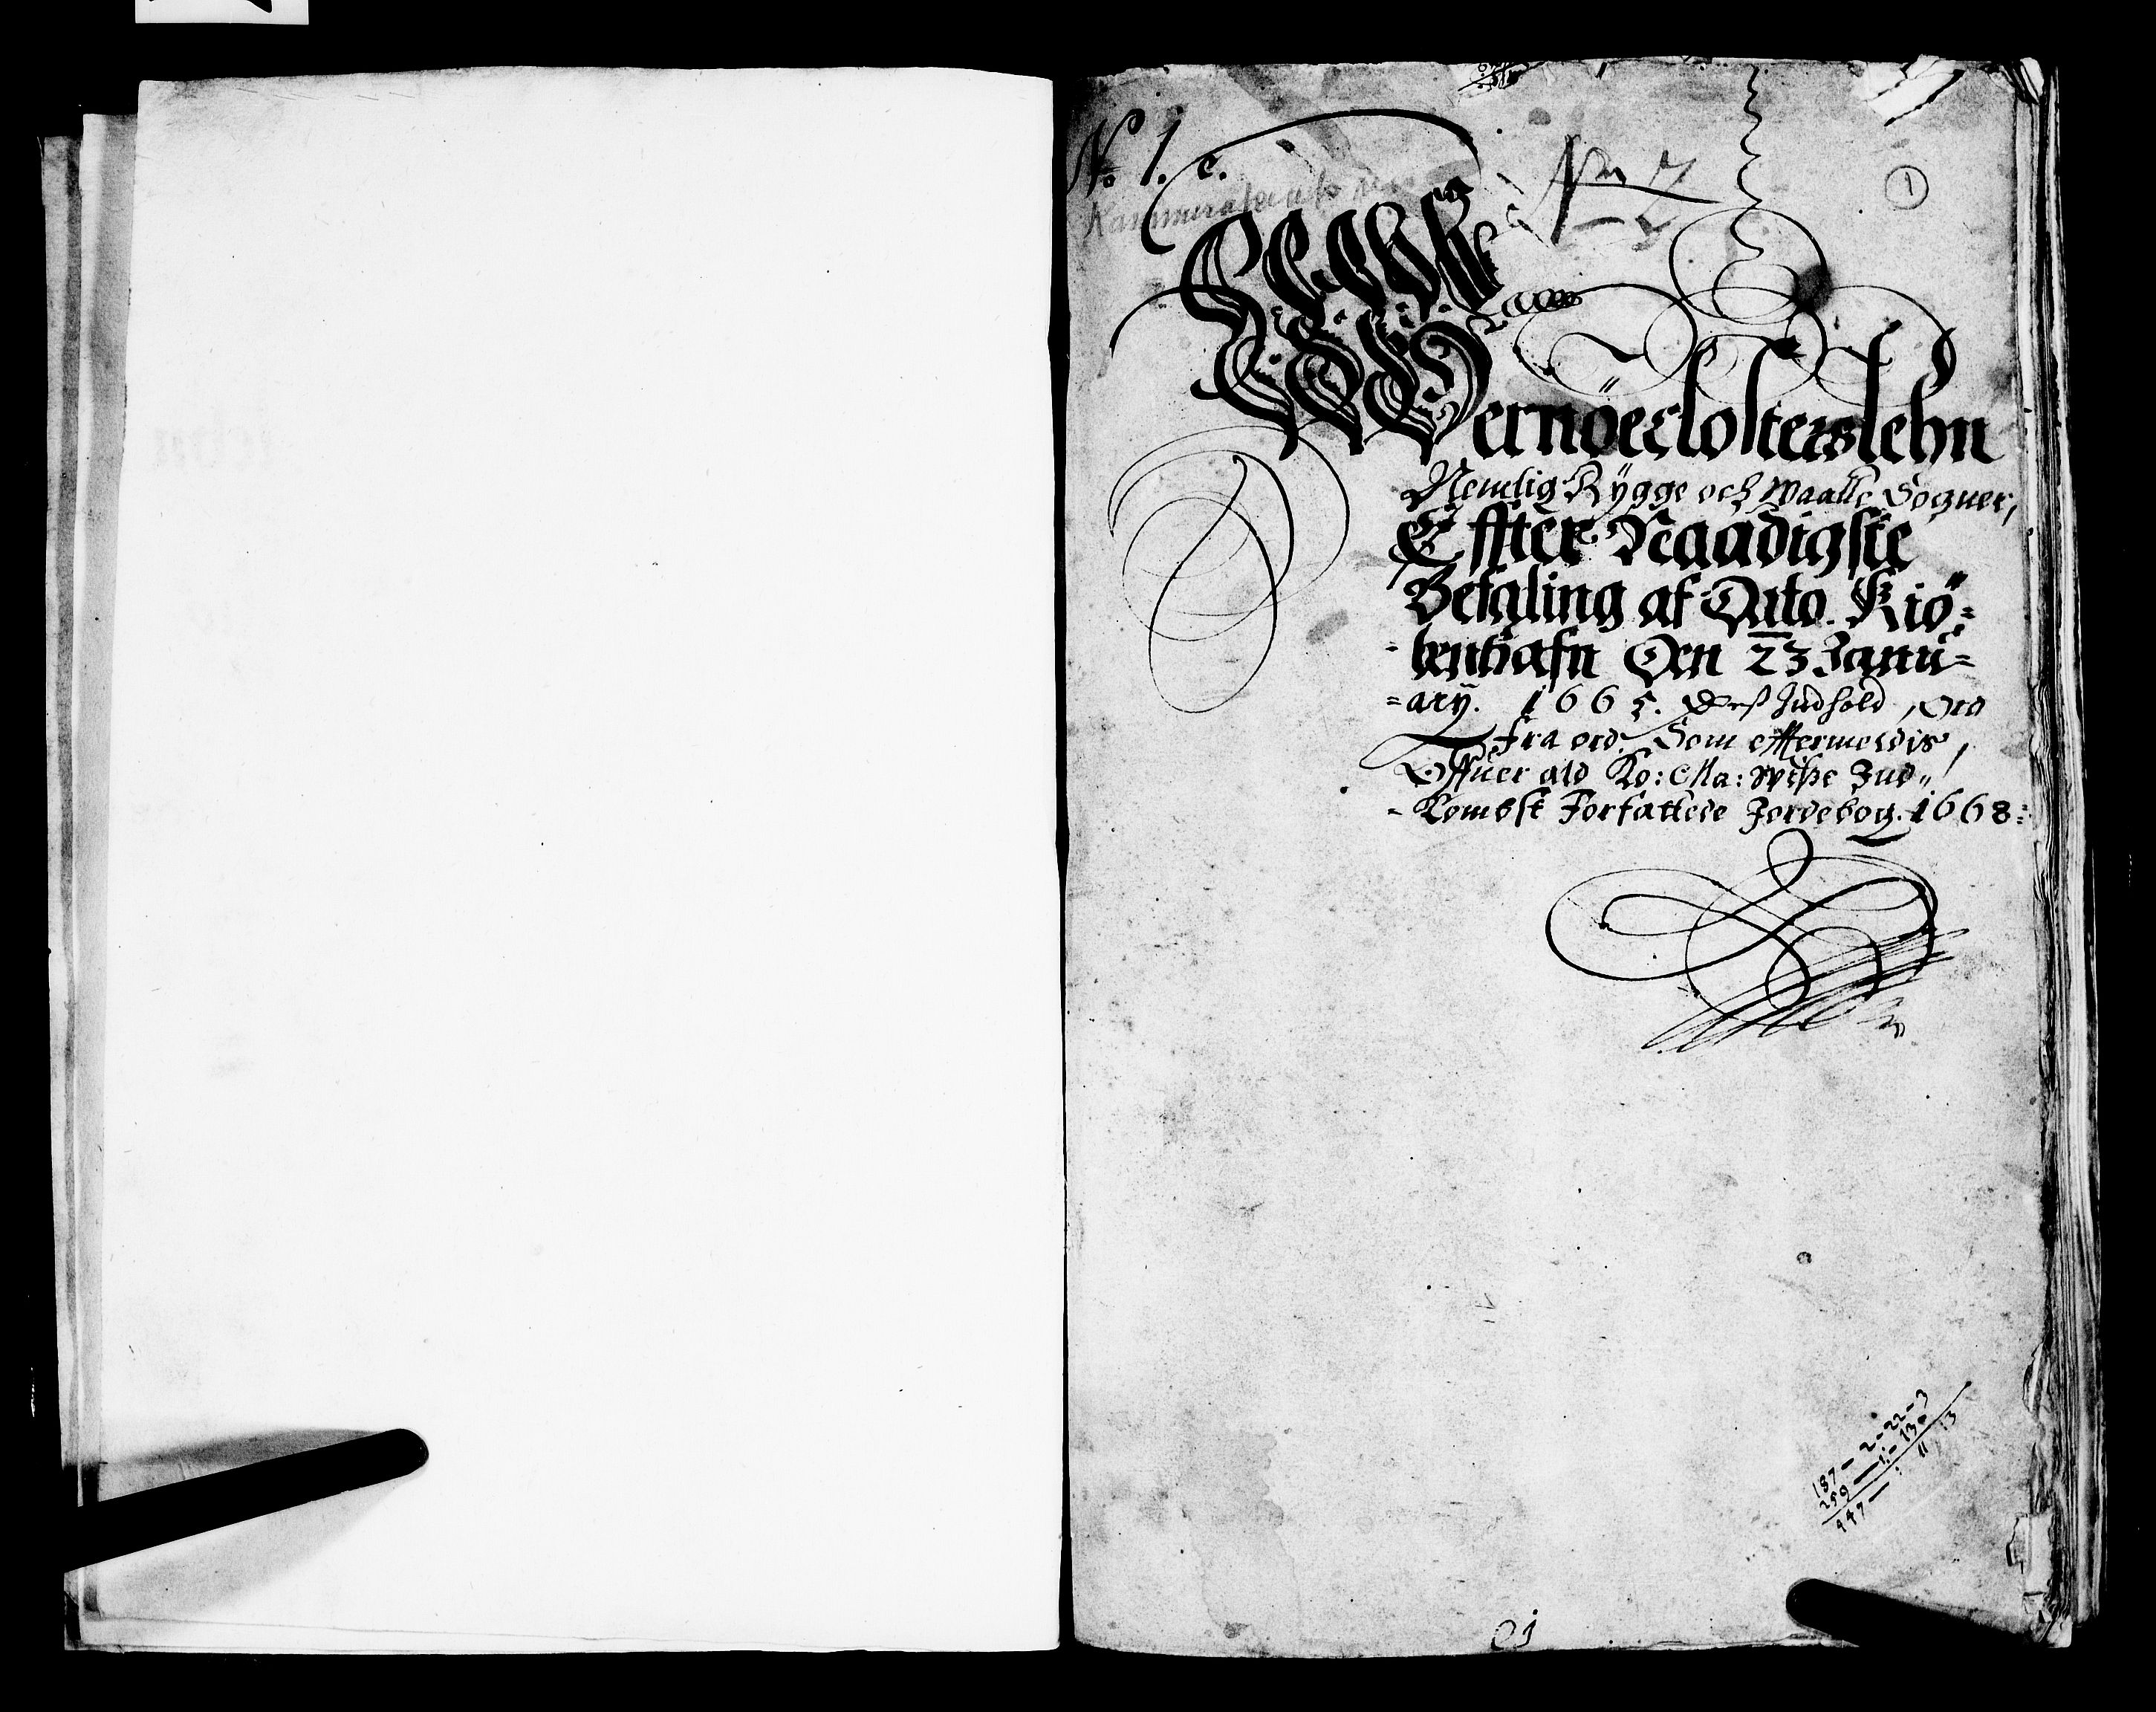 No 1. c.
No 2
1
Wernöeclosterslehn
Nemlig Rÿgge och Waalle Sogner,
Effter Naadigste
Befaling af Dato. Kiö-
benhafn Den 23 Janu-
arÿ. 1665. Deß Indhold, Ord
fra ord, Som effermeldis,
Offuer ald Ko: Ma: wiße Ind„
Kombst Forfattede Jordebog. 1668
187 - 2 - 22 - 3
259 - 1 - 13
447 -